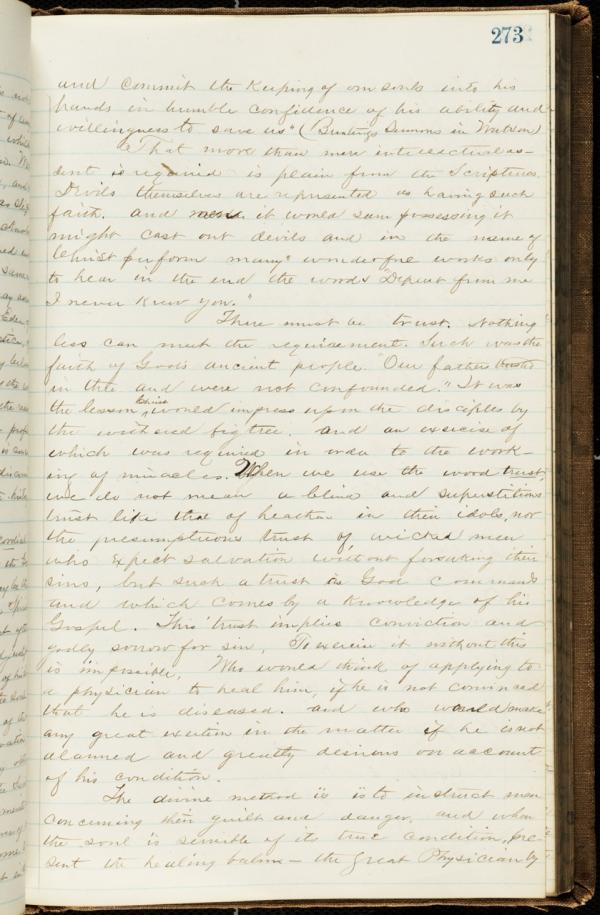 273
and commit the keeping of our souls into his
hands in humble confidence of his ability and
willingness to save us" (Buntings Sermons in Watson)
That more than mere intellectual as-
sent is required is plain from the Scriptures.
Devils themselves are represented as having such
faith. and it would seem possessing it
might cast out devils and in the name of
Christ perform many "wonderful works only
to hear in the end the words "Depart from me
I never knew you."
There must be trust. Nothing
less can meet the requirement. Such was the
faith of God's ancient people. "Our fathers trusted
in thee and were not confounded." It was
the lesson Christ would impress upon the disciples by
the withered fig tree. and an exercise of
which was required in order to the work-
ing of miracles. When we use the word trust,
we do not mean a blind and superstitious
trust like that of heathen in their idols, nor
the presumptuous trust of wicked men
who expect salvation without forsaking their
sins, but such a trust as God commands
and which comes by a knowledge of his
Gospel. This trust implies conviction and
godly sorrow for sin. To exercise it without this
is impossible. Who would think of applying to
a physician to heal him, if he is not convinced
that he is diseased. and who would make
any great exertion in the matter if he is not
alarmed and greatly desirous on account
of his condition.
The divine method is is to instruct men
concerning their guilt and danger, and when
the soul is sensible of its true condition, pre-
sent the healing balm – the great Physician by